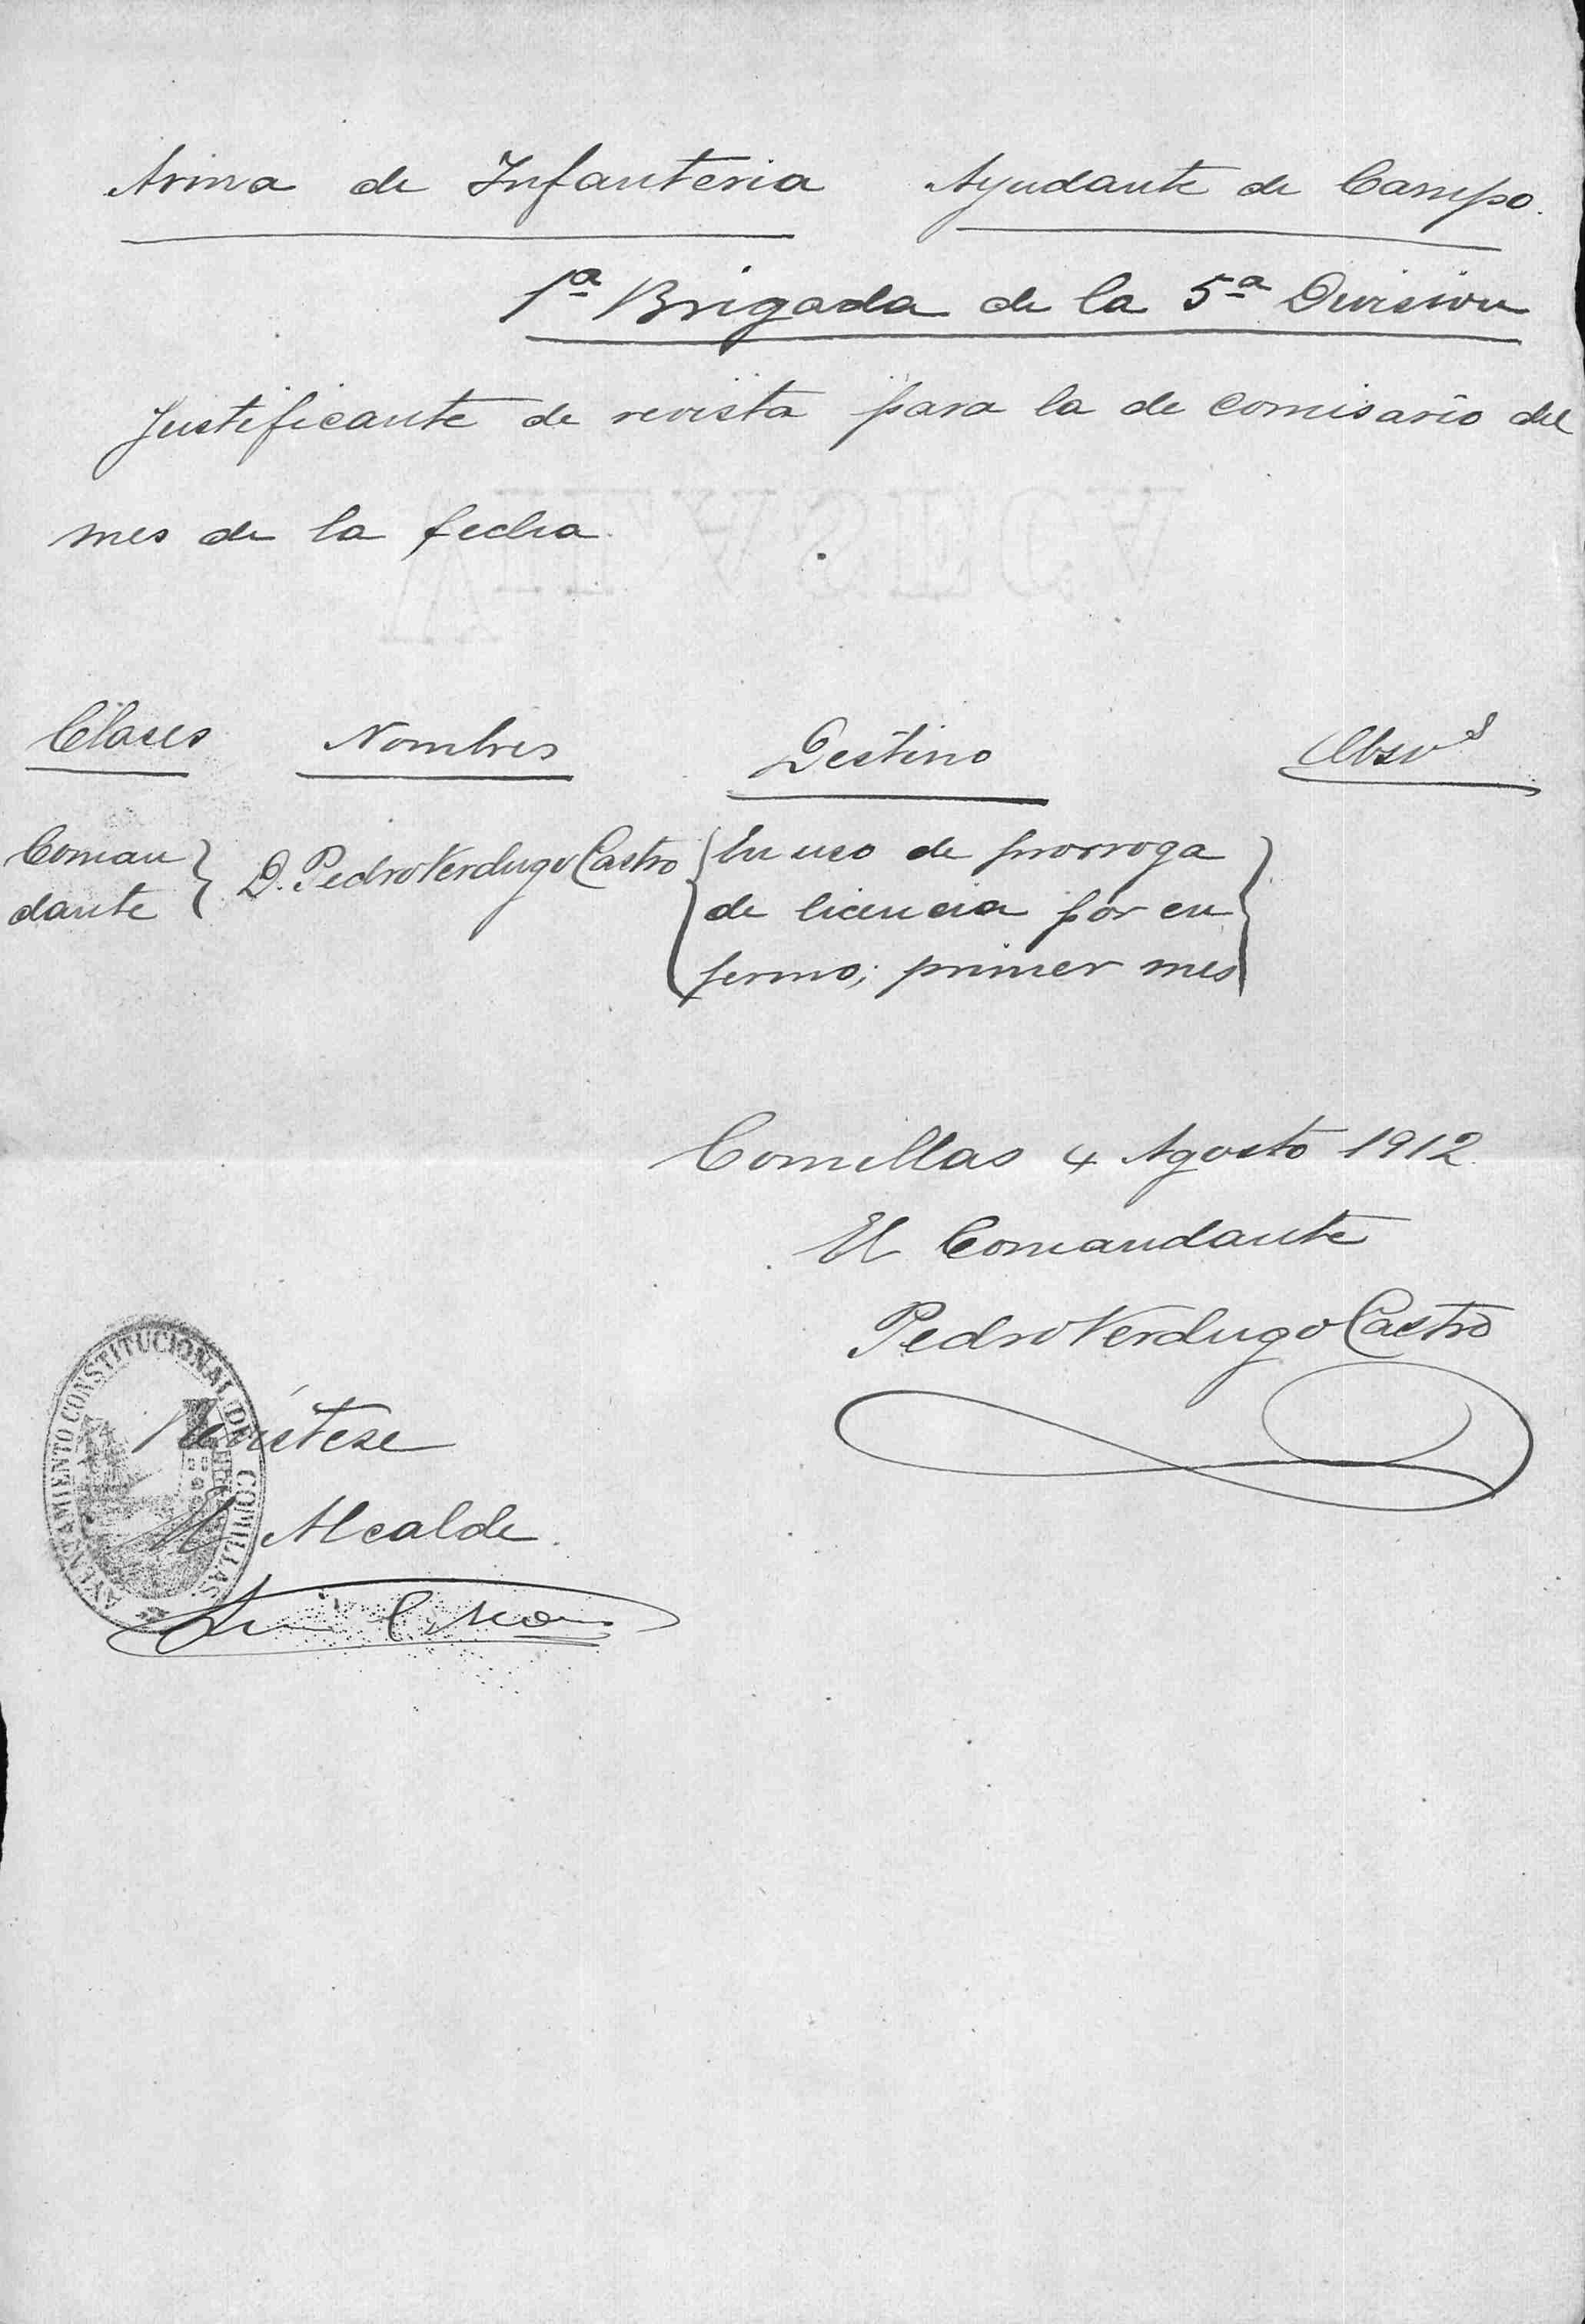 Arma de Infanteria Ayudante de Campo.
1ª Brigada de la 5ª Division
Justificante de revista para la de comisario del
mes de la fecha.
Clases Nombres Destino Obsvˢ
Coman D. Pedro Verdugo Castro En uso de prorroga
dante de licencia por en
fermo; primer mes
Comillas 4 Agosto 1912.
El Comandante
Pedro Verdugo Castro
AYUNTAMIENTO CONSTITUCIONAL DE COMILLAS
Revístese
El Alcalde.